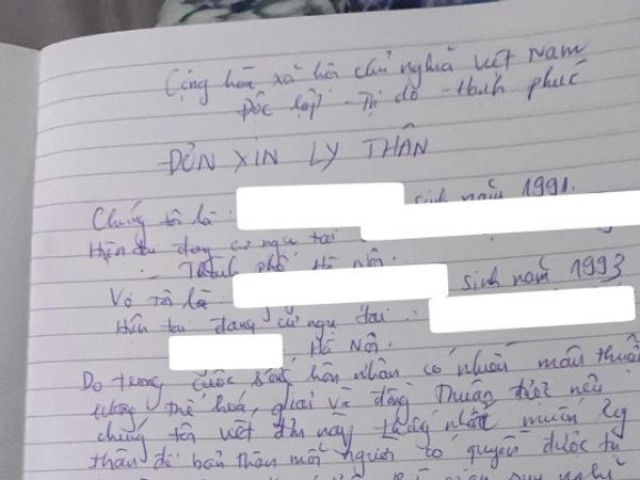 Cộng hòa xã hội chủ nghĩa Việt Nam
Độc lập - Tự do - Hạnh phúc
ĐƠN XIN LY THÂN
Chúng tôi là : sinh năm 1991.
Hiện tại đang cư ngụ tại
- Thành phố Hà Nội.
Vợ tôi là sinh năm 1993
Hiện tại đang cư ngụ tại :
Hà Nội.
Do trong cuộc sống hôn nhân có nhiều mâu thuẫn
không thể hoá giải và đồng thuận được nên
chúng tôi viết đơn này thống nhất muốn ly
thân để bản thân mỗi người có quyền được tự
gian suy nghĩ